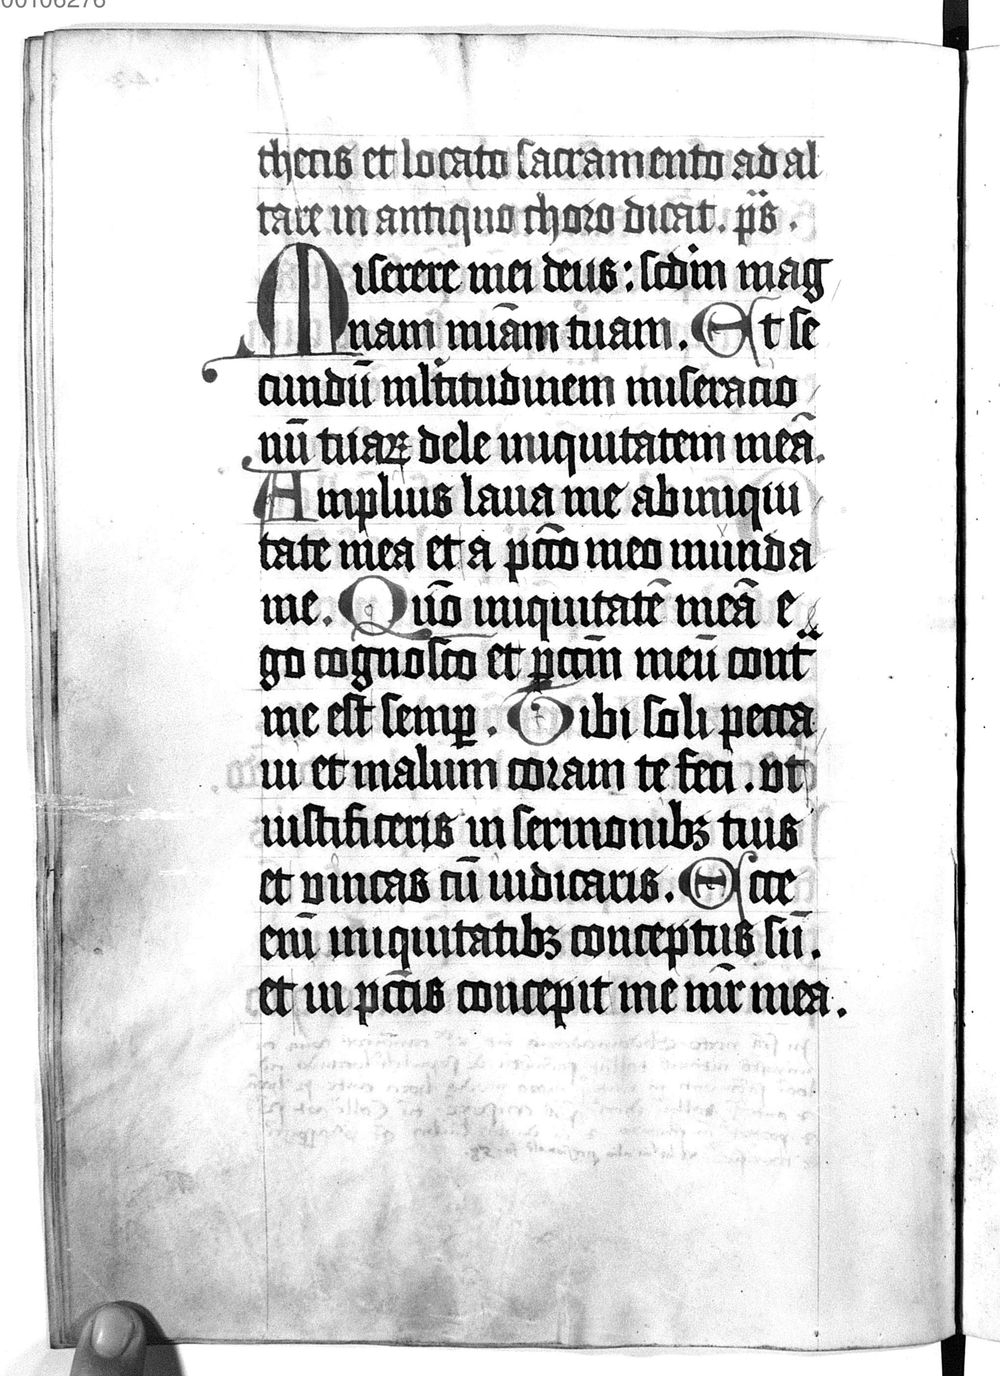 00106276
thecis et locato sacramento ad al
tare in antiquo choro dicat. p̈s.
Miserere mei deus: scdm̄ mag
nam miām tuam. Et se
cundū ml̄titudinem miseracio
nū tuaꝝ dele iniquitatem meā.
Amplius laua me ab iniqui
tate mea et a pctō meo munda
me. Qūo iniquitatē meā e
go cognosco et pctm̄ meū cont̄
me est semꝑ. Tibi soli pecca
ui et malum coram te feci. vt
iustificeris in sermonibꝫ tuis
et vincas cū iudicaris. Ecce
enī iniquitatibꝫ conceptus sū.
et in pctīs concepit me mr̄ mea.